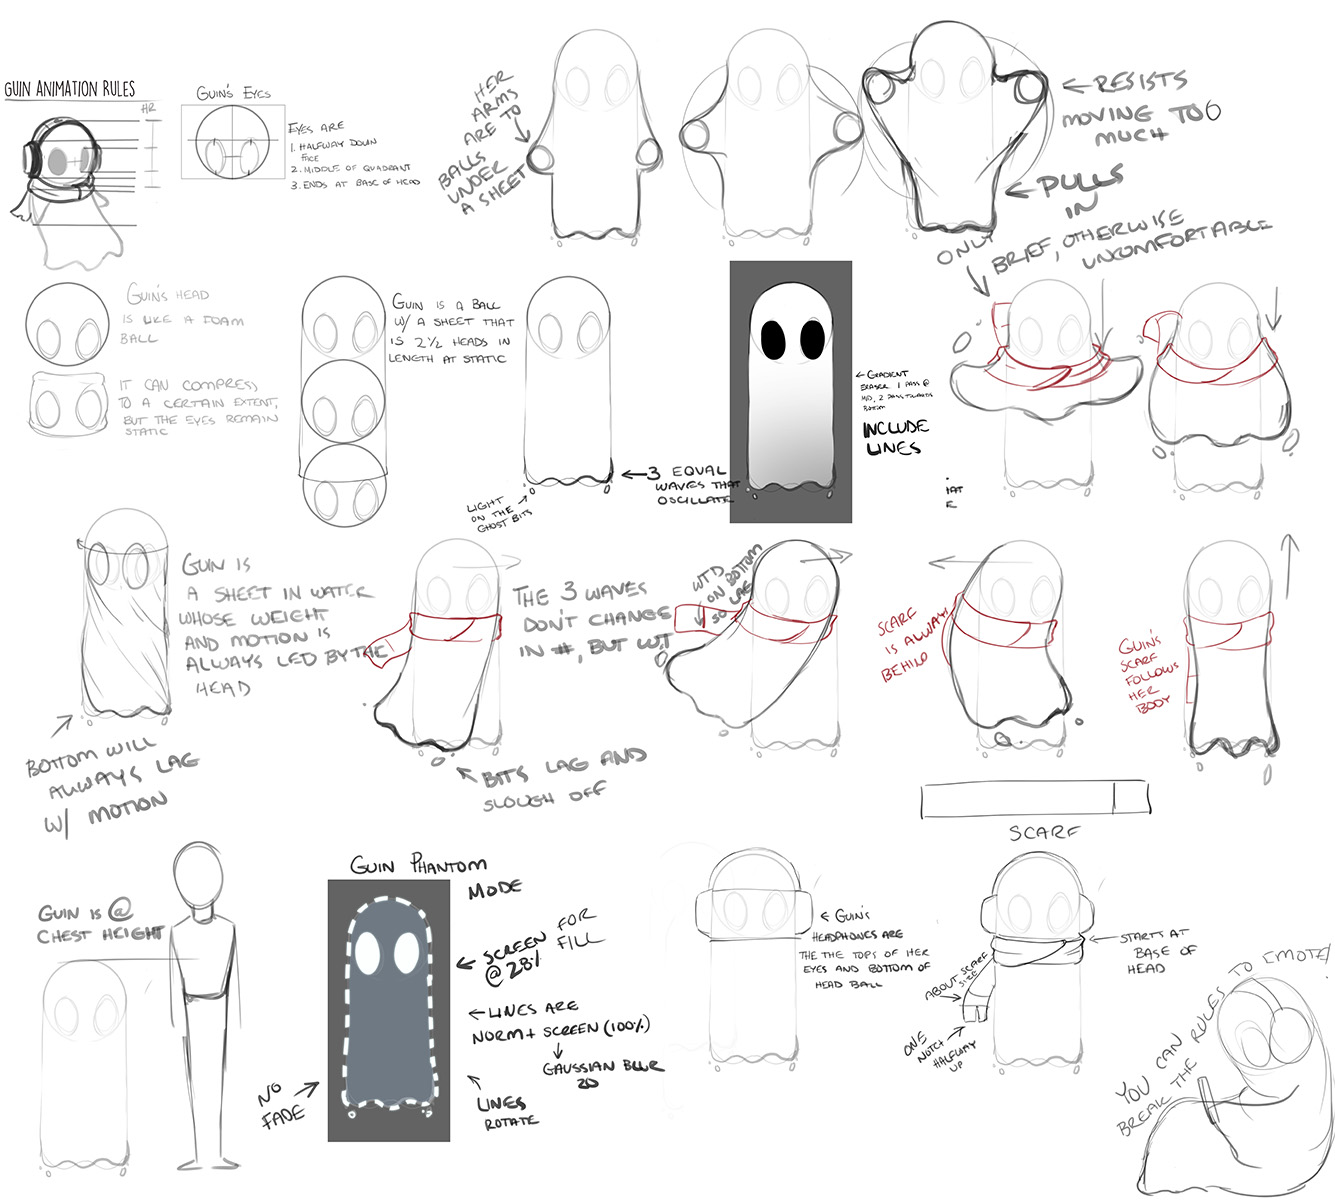 GUIN ANIMATION RULES
HR
GUIN'S EYES
EYES ARE
1. HALFWAY DOWN
FACE
2. MIDDLE OF QUADRANT
3. ENDS AT BASE OF HEAD
HER
ARMS
ARE TO
BALLS
UNDER
A SHEET
RESISTS
MOVING TOO
MUCH
PULLS
IN
ONLY
BRIEF, OTHERWISE
UNCOMFORTABLE
GUIN'S HEAD
IS LIKE A FOAM
BALL
IT CAN COMPRESS
TO A CERTAIN EXTENT,
BUT THE EYES REMAIN
STATIC
GUIN IS A BALL
W/ A SHEET THAT
IS 2½ HEADS IN
LENGTH AT STATIC
LIGHT
ON THE
GHOST BITS
3 EQUAL
WAVES THAT
OSCILLATE
GRADIENT
ERASER 1 PASS @
MID, 2 PASS TOWARDS
BOTTOM
INCLUDE
LINES
GUIN IS
A SHEET IN WATER
WHOSE WEIGHT
AND MOTION IS
ALWAYS LED BY THE
HEAD
BOTTOM WILL
ALWAYS LAG
W/ MOTION
THE 3 WAVES
DON'T CHANGE
IN #, BUT WT
BITS LAG AND
SLOUGH OFF
WTD
ON BOTTOM
SO LAG
SCARF
IS ALWAYS
BEHIND
GUIN'S
SCARF
FOLLOWS
HER
BODY
SCARF
GUIN IS @
CHEST HEIGHT
GUIN PHANTOM
MODE
SCREEN FOR
FILL
@ 28%
LINES ARE
NORM + SCREEN (100%)
GAUSSIAN BLUR
20
LINES
ROTATE
NO
FADE
GUIN'S
HEADPHONES ARE
THE THE TOPS OF HER
EYES AND BOTTOM OF
HEAD BALL
ABOUT SCARF
SIZE
ONE
NOTCH
HALFWAY
UP
STARTS AT
BASE OF
HEAD
YOU CAN RULES TO EMOTE!
BREAK THE